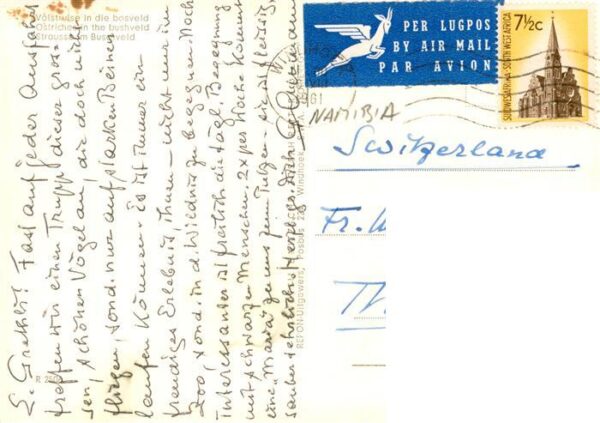 Volstruise in die bosveld
Ostriches in the bushveld
Strausse im Buschveld
L. Grethli! Fast auf jeder Ausfahrt
treffen wir einen Trupp dieser gros-
sen, schönen Vögel an, die doch nicht
fliegen, sond. nur auf starken Beinen
laufen können. Es ist immer ein
freudiges Erlebnis, ihnen – nicht nur im
Zoo, sond. in d. Wildnis zu begegnen. Noch
interessanter ist freilich die tägl. Begegnung
mit schwarzen Menschen. 2x per Woche kommt
eine "Maria" zu uns zum Putzen – sie ist fleissig,
sauber
Herzl.
R 25
REFON-Uitgowers, Posbus 22, Windhoek
PER LUGPOS
BY AIR MAIL
PAR AVION
7½c
SUIDWES-AFRIKA · SOUTH WEST AFRICA
1961
NAMIBIA
Switzerland
Fr.